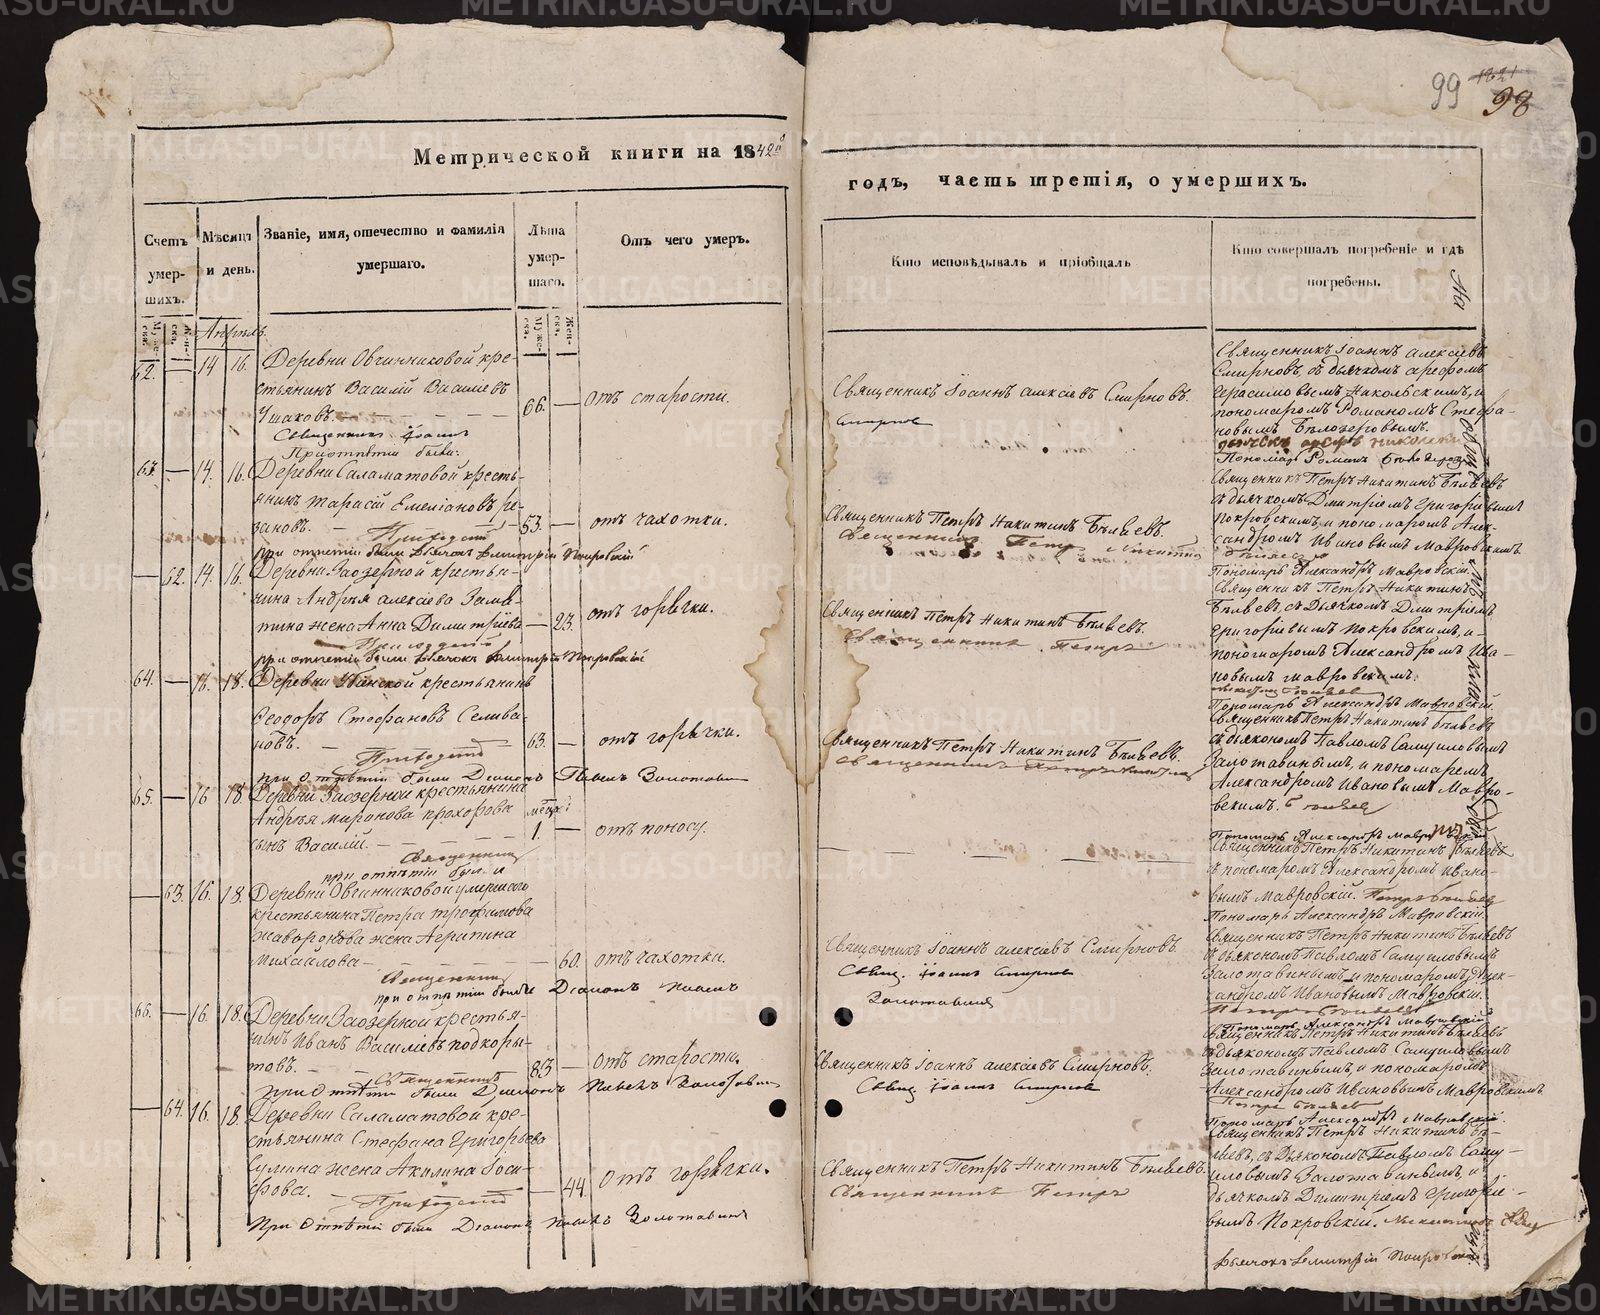 METRIKI.GASO-URAL.RU
99
98
Метрической книги на 1842й
годъ, часть третія, о умершихъ.
Счетъ умер-шихъ.
Мѣсяцъ и день.
Званіе, имя, отечество и фамилія умершаго.
Лѣта умер-шаго.
Отъ чего умеръ.
Кто исповѣдывалъ и пріобщалъ
Кто совершалъ погребеніе и гдѣ погребены.
Апрѣль.
62. — 14 16. Деревни Овчинниковой кре-
стьянинъ Василій Василіевъ
Ушаковъ. 66. — отъ старости.
Священникъ Іоаннъ
При отпѣтіи были:
Священникъ Іоаннъ Алексіевъ Смирновъ.
Смирнов
Священникъ Іоаннъ Алексіевъ
Смирновъ, съ дьячкомъ Арефомъ
Герасимовымъ Никольскимъ, и
пономаромъ Романомъ Стефа-
новымъ Бѣлозеровымъ.
63. — 14. 16. Деревни Саламатовой кресть-
янинъ Тарасій Емеліановъ Ре-
зановъ. 53. — отъ чахотки.
Приходскій
при отпетіи были Дьячок Димитрій Покровскій
Священникъ Петръ Никитинъ Бѣляевъ.
Священникъ Петр Никитин
Пономарь Роман Белозеров
Священникъ Петръ Никитинъ Бѣляевъ
съ дьячкомъ Дмитріемъ Григоріевымъ
Покровскимъ, и пономаромъ Алек-
сандромъ Ивановымъ Мавровскимъ
Беляевъ
— 62. 14. 16. Деревни Заозерной крестья-
нина Андрея Алексіева Замя-
тина жена Анна Димитріева — 23. отъ горячки.
Приходскій
при отпетіи были Дьячок Димитрій Покровскій
Священникъ Петръ Никитинъ Бѣляевъ.
Священникъ Петръ
Пономарь Александръ Мавровскій.
Священникъ Петръ Никитинъ
Бѣляевъ, съ Дьячкомъ Дмитріемъ
Григоріевымъ Покровскимъ, и
пономаромъ Александромъ Ива-
новымъ Мавровскимъ.
64. — 16. 18. Деревни крестьянинъ
Ѳеодоръ Стефановъ Селива-
новъ. 63. — отъ горячки.
Приходскій
при Отпѣтіи были Діаконъ Павелъ Золотавин
Священникъ Петръ Никитинъ Бѣляевъ.
Священникъ Петръ Никитинъ
Пономарь Александръ Мавровскій.
Священникъ Петръ Никитинъ Бѣляевъ
съ дьякономъ Павломъ Самуиловымъ
Залотавинымъ, и пономаремъ
Александромъ Ивановымъ Мавро-
вскимъ. Беляев
65. — 16 18 Деревни Заозерной крестьянина
Андрея Миронова Прохорова
сынъ Василій. 1 — отъ поносу.
Священникъ
при отпѣтіи был и
Пономарь Александръ Мавровскій
Священникъ Петръ Никитинъ Бѣляевъ
съ пономаромъ Александромъ Ивано-
вымъ Мавровскій. Петръ Беляев
— 63. 16. 18. Деревни Овчинниковой умершаго
крестьянина Петра Трофимова
Жаворонкова жена Агрипина
Михайлова — — 60. отъ чахотки.
Священникъ
при отпѣтіи были Діаконъ Павелъ
Священникъ Іоаннъ Алексіевъ Смирновъ.
Свящ. Іоаннъ Смирнов
Золотавин
Пономарь Александръ Мавровскій.
Священникъ Петръ Никитинъ Бѣляевъ
съ дьякономъ Павломъ Самуиловымъ
Залотавинымъ, и пономаромъ Алек-
сандромъ Ивановымъ Мавровскій.
Петръ Беляевъ
66. — 16. 18. Деревни Заозерной крестья-
нинъ Иванъ Василіевъ Подкоры-
товъ. — 83 — отъ старости.
Священникъ
при Отпѣтіи были Діаконъ Павелъ Золотавин
Священникъ Іоаннъ Алексіевъ Смирновъ.
Свящ. Іоаннъ Смирнов
Пономарь Александръ Мавровскій
Священникъ Петръ Никитинъ Бѣляевъ
съ дьякономъ Павломъ Самуиловымъ
Залотавинымъ, и пономаромъ
Александромъ Ивановымъ Мавровскимъ.
Петръ Беляевъ
— 64. 16. 18. Деревни Саламатовой кре-
стьянина Стефана Григорьева
Сулина жена Акилина Іоси-
фова. — 44. Отъ горячки.
Приходскій
При Отпѣтіи были Діаконъ Павелъ Золотавинъ
Священникъ Петръ Никитинъ Бѣляевъ.
Священникъ Петръ
Пономарь Александръ Мавровскій.
Священникъ Петръ Никитинъ Бѣ-
ляевъ, съ Дьякономъ Павломъ Саму-
иловымъ Залотавинымъ, и
дьячкомъ Димитріемъ Григоріе-
вымъ Покровскій.
Дьячокъ Димитрій Покровскій